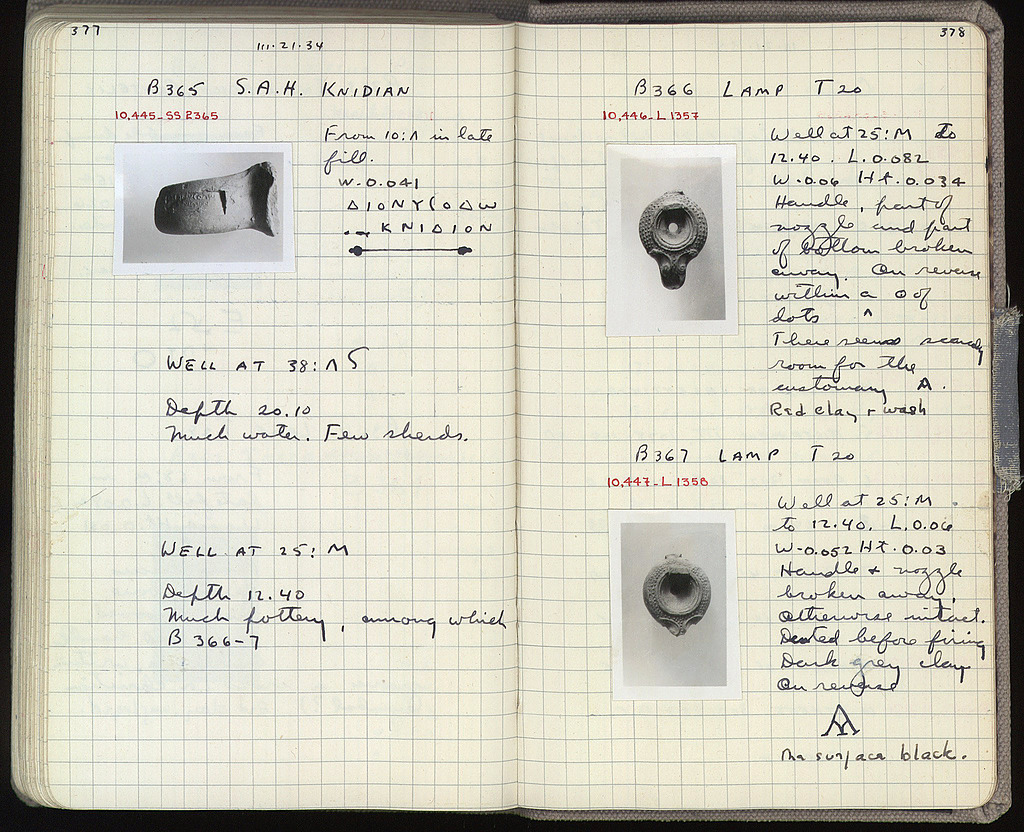 377
III·21·34
B365 S.A.H. KNIDIAN
10,445-SS 2365
From 10:Λ in late
fill.
W. 0.041
ΔIONYCOΔW
.. KNIDION
WELL AT 38:ΛS
Depth 20.10
Much water. Few sherds.
WELL AT 25:M
Depth 12.40
Much pottery, among which
B 366-7
378
B366 LAMP T 20
10,446-L 1357
Well at 25:M to
12.40. L. 0.082
W. 0.06 Ht. 0.034
Handle, part of
nozzle and part
of bottom broken
away. On reverse
within a O of
dots ^
There seems scarcely
room for the
customary A.
Red clay + wash
B367 LAMP T 20
10,447-L 1358
Well at 25:M.
to 12.40. L. 0.06
W. 0.052 Ht. 0.03
Handle + nozzle
broken away,
otherwise intact.
Dented before firing
Dark grey clay
On reverse
The surface black.